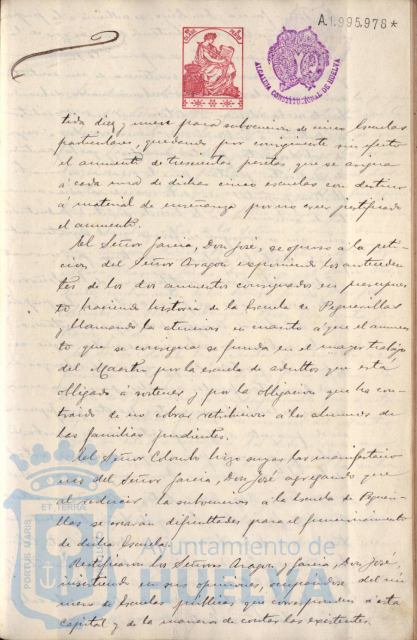 A.1.995.978*
ALCALDIA CONSTITUCIONAL DE HUELVA
tida diez y nueve para subvencion de cinco Escuelas
particulares, quedando por consiguiente sin efecto
el aumento de trescientas pesetas que se asigna
á cada una de dichas cinco escuelas con destino
á material de enseñanza por no creer justificado
el aumento.
El Señor Garcia, Don José, se opuso á la peti-
cion del Señor Aragon exponiendo los anteceden-
tes de los dos aumentos consignados en presupues-
to haciendo historia de la Escuela de Pequenillas
y llamando la atencion en cuanto á que el aumen-
to que se consigna se funda en el mayor trabajo
del Maestro por la escuela de adultos que está
obligado á sostener y por la obligacion que ha con-
traido de no cobrar retribucion á los alumnos de
las familias pudientes.
El Señor Colombo hizo suyas las manifestacio-
nes del Señor Garcia, Don José agregando que
al reducir la subvencion á la Escuela de Peque-
illas se crearian dificultades para el funcionamiento
de dicha Escuela.
Rectificaron los Señores Aragon y Garcia, Don José,
insistiendo en sus opiniones, ocupandose del nú-
mero de Escuelas públicas que corresponden á esta
capital y de la manera de contar las existentes.
PORTUS MARIS ET TERRAE
Ayuntamiento de
HUELVA